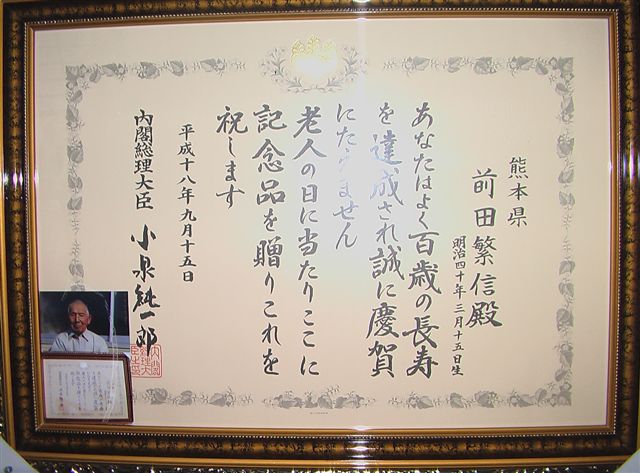 熊本県
前田繁信殿
明治四十年三月十五日生
あなたはよく百歳の長寿
を達成され誠に慶賀
にたえません
老人の日に当たりここに
記念品を贈りこれを
祝します
平成十八年九月十五日
内閣総理大臣 小泉純一郎